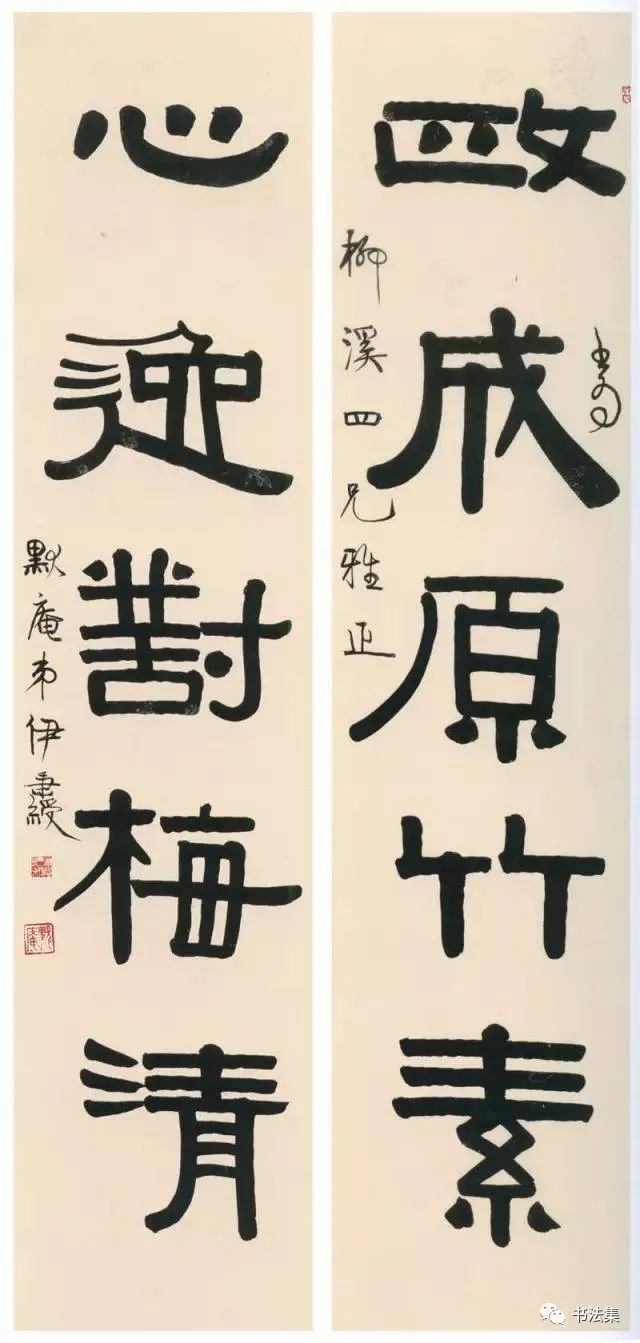 政成原竹素
柳溪四兄雅正
心對梅清
默庵弟伊秉綬
书法集